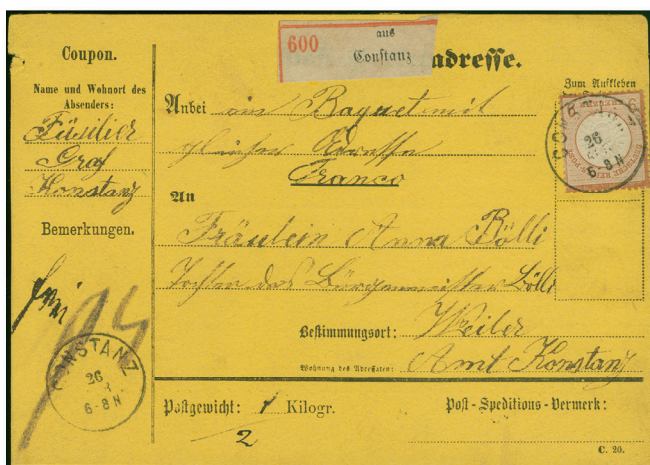 Coupon.
Name und Wohnort des
Absenders:
Füsilier
Graf
Konstanz
Bemerkungen.
frei
14
CONSTANZ
26
6-8 N
600
aus
Constanz
adresse.
Zum Aufkleben
Anbei ein Paquet mit
gleicher Adresse
Franco
An
Fräulein Anna Bölli
Tochter des Bürgermeister Bölli
Bestimmungsort: Weiler
Wohnung des Adressaten: Amt Konstanz
CONSTANZ
26
6-8 N
Postgewicht: 1 Kilogr.
2
Post-Speditions-Vermerk:
C. 20.